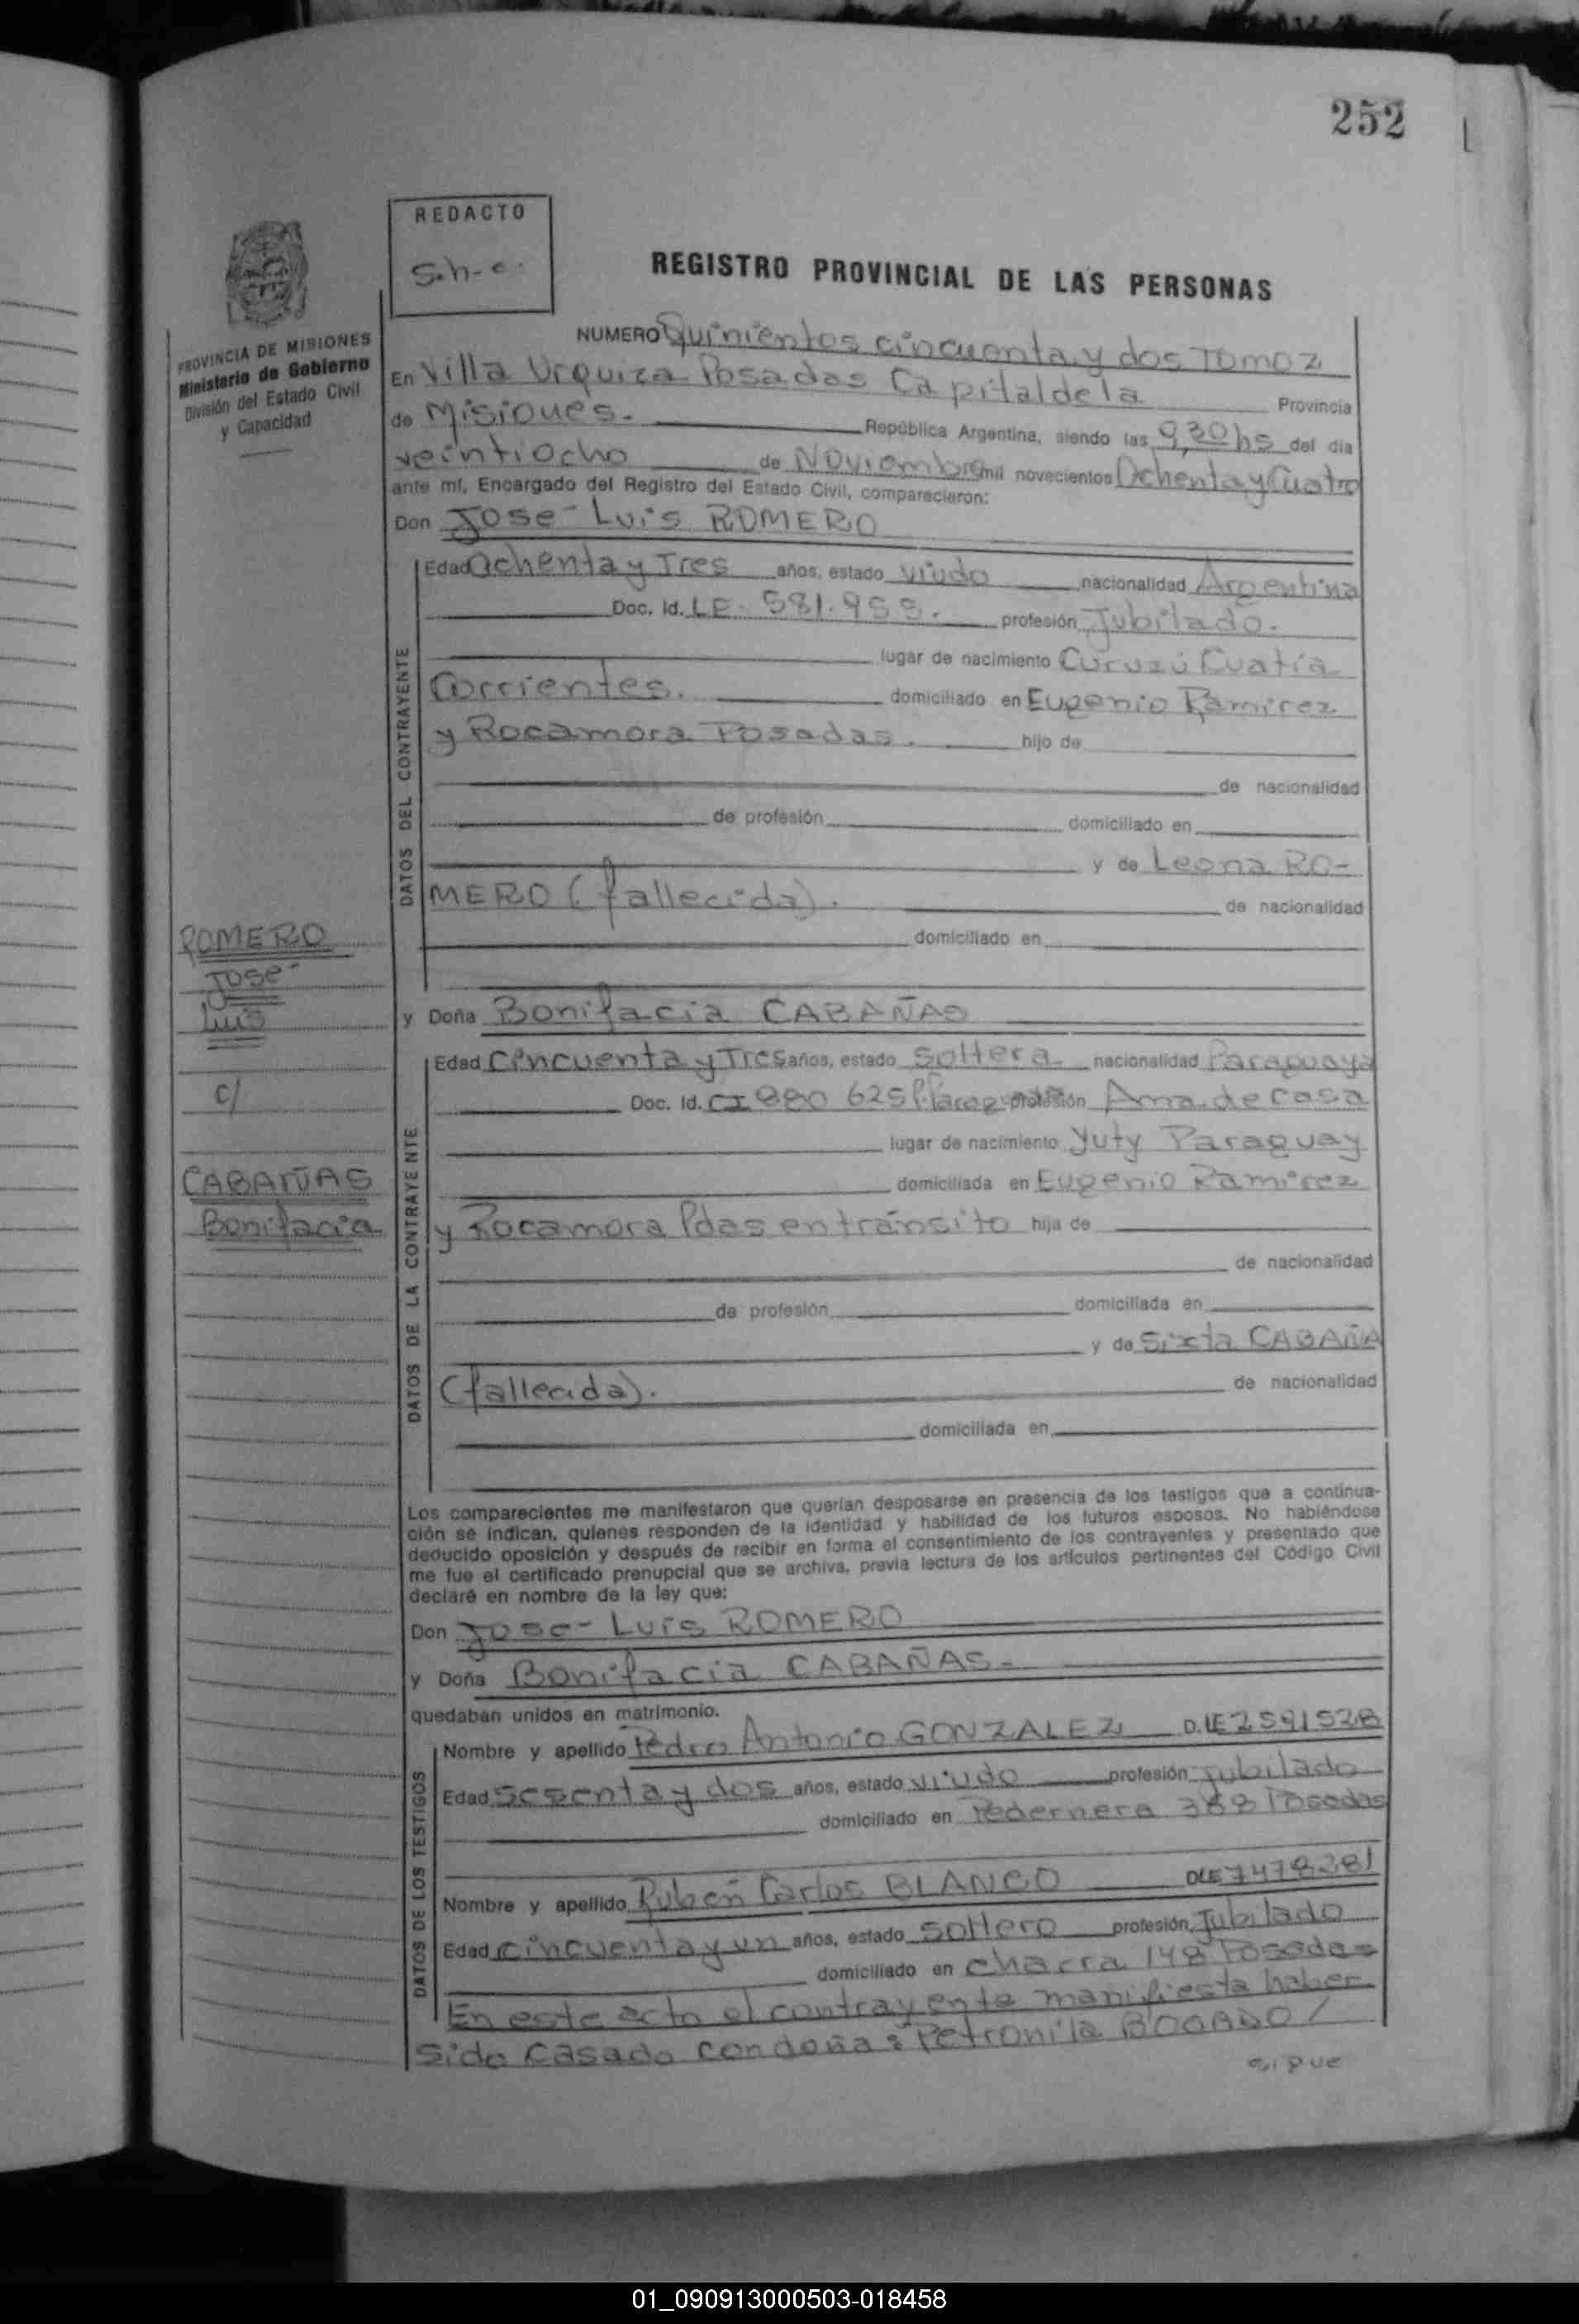 252
REDACTO
S.h-c.
REGISTRO PROVINCIAL DE LAS PERSONAS
PROVINCIA DE MISIONES
Ministerio de Gobierno
División del Estado Civil
y Capacidad
NUMERO Quinientos cincuenta y dos Tomo 2
En Villa Urquiza Posadas Capital de la Provincia
de Misiones. República Argentina, siendo las 9,30 hs del día
veintiocho de Noviembre mil novecientos Ochenta y Cuatro
ante mí, Encargado del Registro del Estado Civil, comparecieron:
Don Jose Luis ROMERO
DATOS DEL CONTRAYENTE
Edad Ochenta y Tres años, estado viudo nacionalidad Argentina
Doc. Id. LE. 581.955. profesión Jubilado.
lugar de nacimiento Curuzú Cuatía
Corrientes. domiciliado en Eugenio Ramirez
y Rocamora Posadas. hijo de
de nacionalidad
de profesión domiciliado en
y de Leona RO-
MERO (fallecida). de nacionalidad
domiciliado en
ROMERO
José
Luis
c/
CABAÑAS
Bonifacia
y Doña Bonifacia CABAÑAS
DATOS DE LA CONTRAYENTE
Edad Cincuenta y Tres años, estado soltera nacionalidad Paraguaya
Doc. Id. CI 880 625 profesión Ama de casa
lugar de nacimiento Yuty Paraguay
domiciliada en Eugenio Ramirez
y Rocamora Pdas en tránsito hija de
de nacionalidad
de profesión domiciliada en
y de Sixta CABAÑA
(fallecida). de nacionalidad
domiciliada en
Los comparecientes me manifestaron que querían desposarse en presencia de los testigos que a continua-
ción se indican, quienes responden de la identidad y habilidad de los futuros esposos. No habiéndose
deducido oposición y después de recibir en forma el consentimiento de los contrayentes y presentado que
me fue el certificado prenupcial que se archiva, previa lectura de los artículos pertinentes del Código Civil
declaré en nombre de la ley que:
Don Jose Luis ROMERO
y Doña Bonifacia CABAÑAS-
quedaban unidos en matrimonio.
DATOS DE LOS TESTIGOS
Nombre y apellido Pedro Antonio GONZALEZ D.LE 2591528
Edad Sesenta y dos años, estado viudo profesión Jubilado
domiciliado en Pedernera 388 Posadas
Nombre y apellido Rubén Carlos BLANCO DLE 7478381
Edad cincuenta y un años, estado soltero profesión Jubilado
domiciliado en chacra 148 Posadas
En este acto el contrayente manifiesta haber
sido casado con doña: Petronila BOGADO/
sigue
01_090913000503-018458